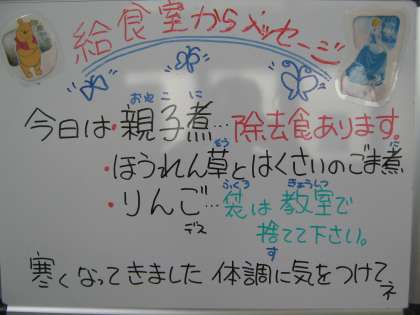 給食室からメッセージ
今日は・親子煮…除去食あります。
・ほうれん草とはくさいのごま煮
・りんご…デス 袋は教室で
捨てて下さい。
寒くなってきました 体調に気をつけてネ